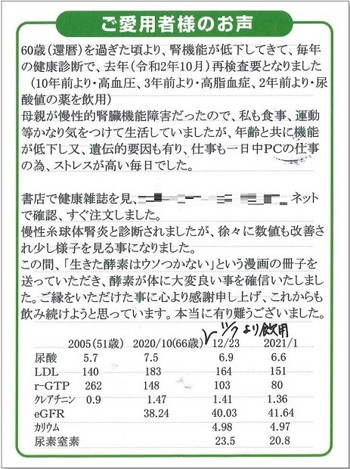 ご愛用者様のお声
60歳(還暦)を過ぎた頃より、腎機能が低下してきて、毎年
の健康診断で、去年(令和2年10月)再検査要となりました
(10年前より・高血圧、3年前より・高脂血症、2年前より・尿
酸値の薬を飲用)
母親が慢性的腎臓機能障害だったので、私も食事、運動
等かなり気をつけて生活していましたが、年齢と共に機能
が低下し又、遺伝的要因も有り、仕事も一日中PCの仕事
の為、ストレスが高い毎日でした。
書店で健康雑誌を見、 ネット
で確認、すぐ注文しました。
慢性糸球体腎炎と診断されましたが、徐々に数値も改善さ
れ少し様子を見る事になりました。
この間、「生きた酵素はウソつかない」という漫画の冊子を
送っていただき、酵素が体に大変良い事を確信いたしまし
た。ご縁をいただけた事に心より感謝申し上げ、これからも
飲み続けようと思っています。本当に有り難うございました。
より飲用
2005(51歳) 2020/10(66歳) 12/23 2021/1
尿酸 5.7 7.5 6.9 6.6
LDL 140 183 164 151
r-GTP 262 148 103 80
クレアチニン 0.9 1.47 1.41 1.36
eGFR 38.24 40.03 41.64
カリウム 4.98 4.97
尿素窒素 23.5 20.8